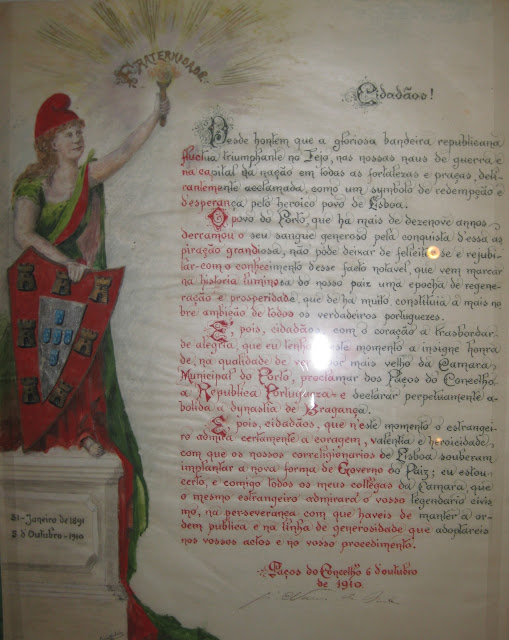 FRATERNIDADE
Cidadãos!
Desde hontem que a gloriosa bandeira republicana
fluctua triumphante no Tejo, nas nossas naus de guerra e
na capital da nação em todas as fortalezas e praças, deli-
rantemente acclamada, como um symbolo de redempção e
d'esperança pelo heroico povo de Lisboa.
O povo do Porto, que há mais de dezenove annos,
derramou o seu sangue generoso pela conquista d'essa as-
piração grandiosa, não póde deixar de felicitar-se e rejubi-
lar-com o conhecimento d'esse facto notavel, que vem marcar
na historia luminosa do nosso paiz uma epocha de regene-
ração e prosperidade, que de ha muito constituia a mais no-
bre ambição de todos os verdadeiros portuguezes.
E, pois, cidadãos, com o coração a trasbordar
de alegria, que eu tenho este momento a insigne honra
de, na qualidade de vereador mais velho da Camara
Municipal do Porto, proclamar dos Paços do Concelho
a Republica Portugueza e declarar perpetuamente a-
bolida a dynastia de Bragança.
E pois, cidadãos, que n'este momento o estrangei-
ro admira certamente a coragem, valentia e heroicidade,
com que os nossos correligionarios de Lisboa souberam
implantar a nova forma de Governo do Paiz; eu estou
certo, e comigo todos os meus collegas da Camara, que
o mesmo estrangeiro admirará o vosso legendario civis-
mo, na perseverança com que haveis de manter a or-
dem publica e na linha de generosidade que adoptareis
nos vossos actos e no vosso procedimento.
Paços do Concelho 6 d'outubro
de 1910.
31-Janeiro de 1891
5 d'Outubro-1910